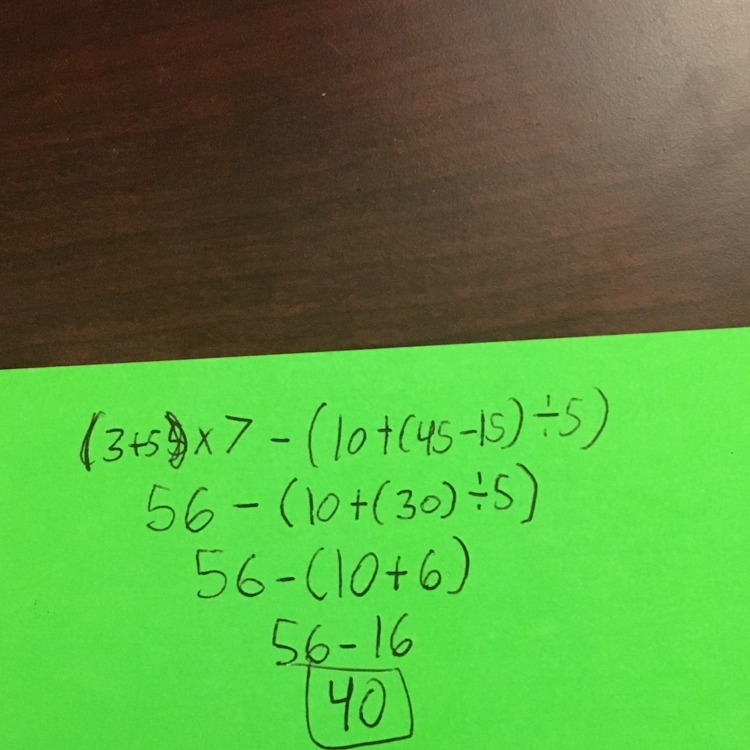 (3+5)×7-(10+(45-15)÷5)
56-(10+(30)÷5)
56-(10+6)
56-16
40